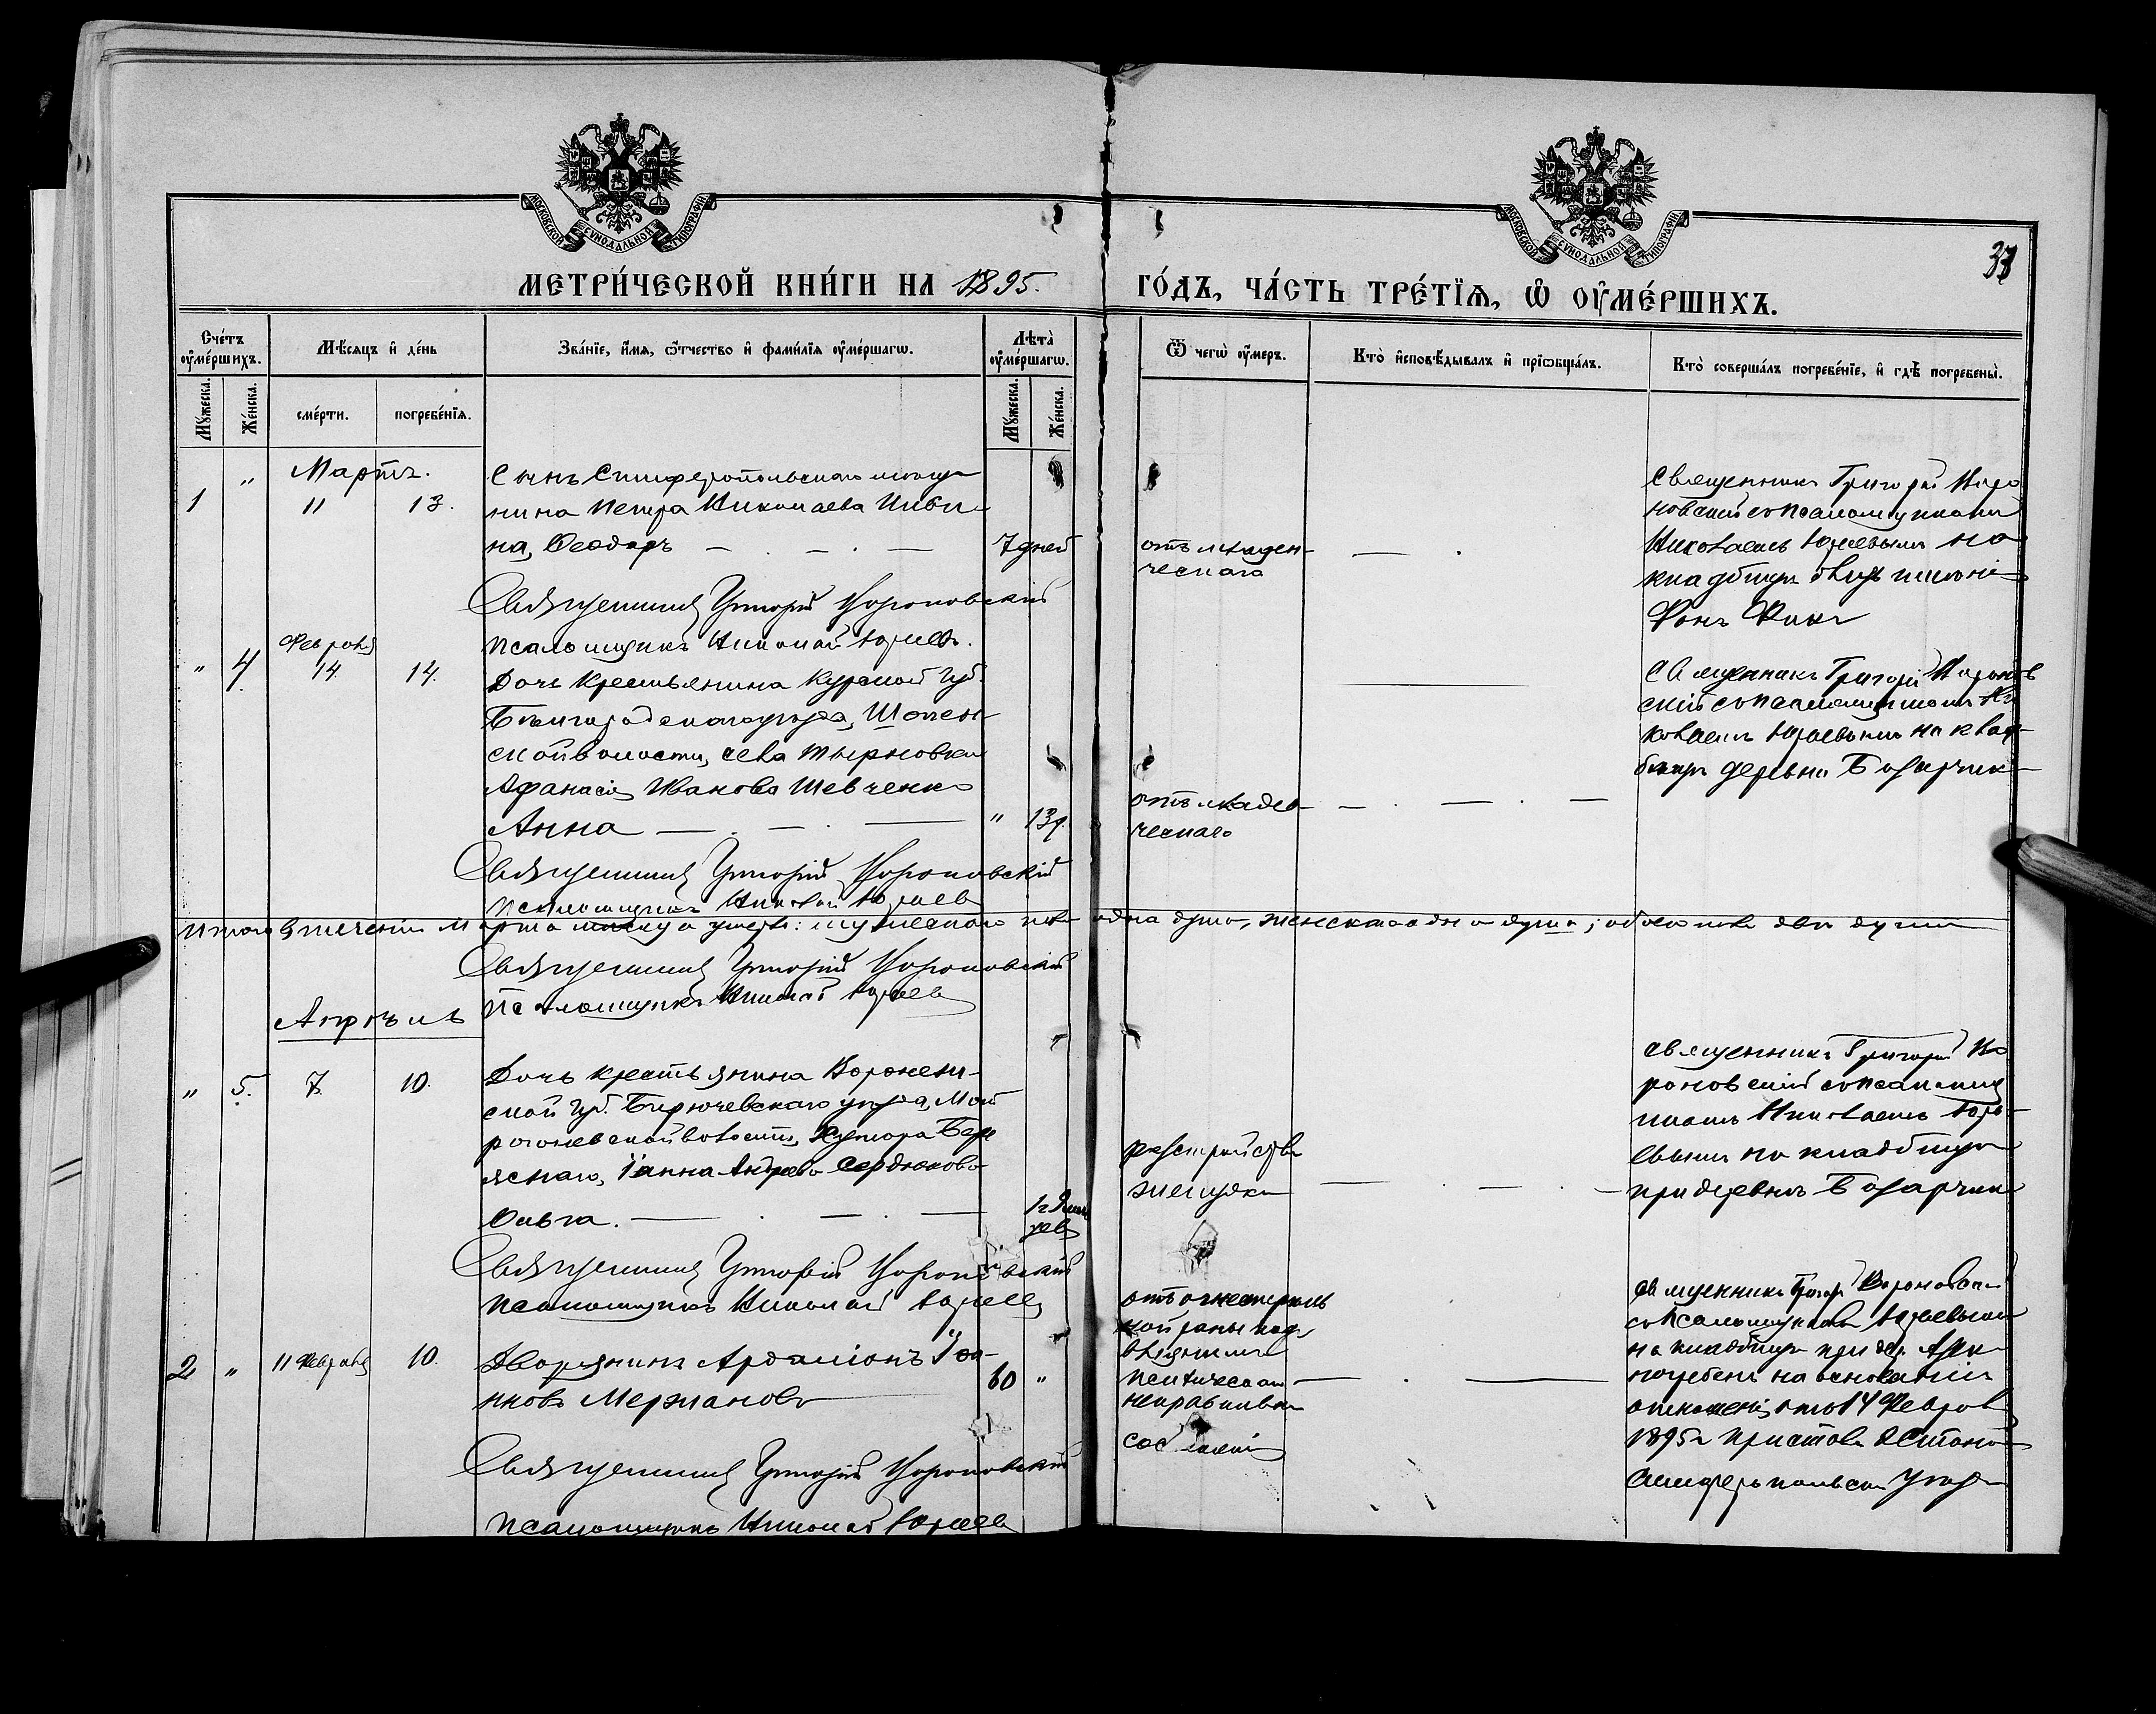 МОСКОВСКОЙ СѴНОДАЛЬНОЙ ТИПОГРАФІИ
МОСКОВСКОЙ СѴНОДАЛЬНОЙ ТИПОГРАФІИ
37
МЕТРИ́ЧЕСКОЙ КНИ́ГИ НА 1895.
ГО́ДЪ, ЧА́СТЬ ТРЕ́ТІѦ, Ѡ҆ ОУ҆МЕ́РШИХЪ.
Сче́тъ оу҆ме́ршихъ.
Мѣ́сяцъ и҆ де́нь
Зва́нїе, и҆́мя, ѻ҆́тчество и҆ фами́лїя оу҆ме́ршагѡ.
Лѣ́та оу҆ме́ршагѡ.
Ѿ чегѡ̀ оу҆́меръ.
Кто̀ и҆сповѣ́дывалъ и҆ прїѡбща́лъ.
Кто̀ соверша́лъ погребе́нїе, и҆ гдѣ̀ погребены̀.
Мꙋ́жеска.
Же́нска.
сме́рти.
погребе́нїя.
Мꙋ́жеска.
Же́нска.
Мартъ.
1 " 11 13.
Сынъ Симферопольскаго мѣща
нина Петра Николаева
на, Ѳеодоръ — . — . — 7 дней
отъ младен-
ческаго
Священникъ Григорій Воро
новскій съ псаломщикомъ
Николаемъ Юрьевымъ на
кладбищѣ
Фонъ
Священникъ Григорій Вороновскій
Псаломщикъ Николай Юрьевъ.
" 4. Февраля 14. 14.
Дочь крестьянина Курской губ.
Бѣлгородскаго уѣзда,
ской волости, села Тырновки
Афанасія Иванова Шевченко
Анна — . — . — " 13 д.
отъ младен-
ческаго
Священникъ Григорій Воронов
скій съ псаломщикомъ Ни
колаемъ Юрьевымъ на клад-
бищѣ деревни
Священникъ Григорій Вороновскій
Псаломщикъ Николай Юрьевъ
Итого въ теченіи Марта мѣсяца умерло: мужескаго пола одна душа, женскаго одна душа; обоего пола двѣ души
Священникъ Григорій Вороновскій
Псаломщикъ Николай Юрьевъ
Апрѣль
" 5. 7. 10.
Дочь крестьянина Воронеж-
ской губ. Бирюченскаго уѣзда,
волости, хутора
Андреева Сердюкова
Ольга. — . — . —
разстройства
желудка
Священникъ Григорій Во
роновскій съ псаломщи
комъ Николаемъ Юрь-
евымъ на кладбищѣ
при деревнѣ
Священникъ Григорій Вороновскій
Псаломщикъ Николай Юрьевъ
2 " 11 Февраля 10.
Дворянинъ Ардаліонъ Іоа-
нновъ Мержановъ 60 "
отъ огнестрѣль
ной раны подъ
вліяніемъ
Священникъ Григорій Вороновскій
съ псаломщикомъ Юрьевымъ
на кладбищѣ при дер.
погребенъ на основаніи
отношенія отъ 14 Февраля
1895 г. пристава 2 Стана
Симферопольск. уѣзда
Священникъ Григорій Вороновскій
Псаломщикъ Николай Юрьевъ